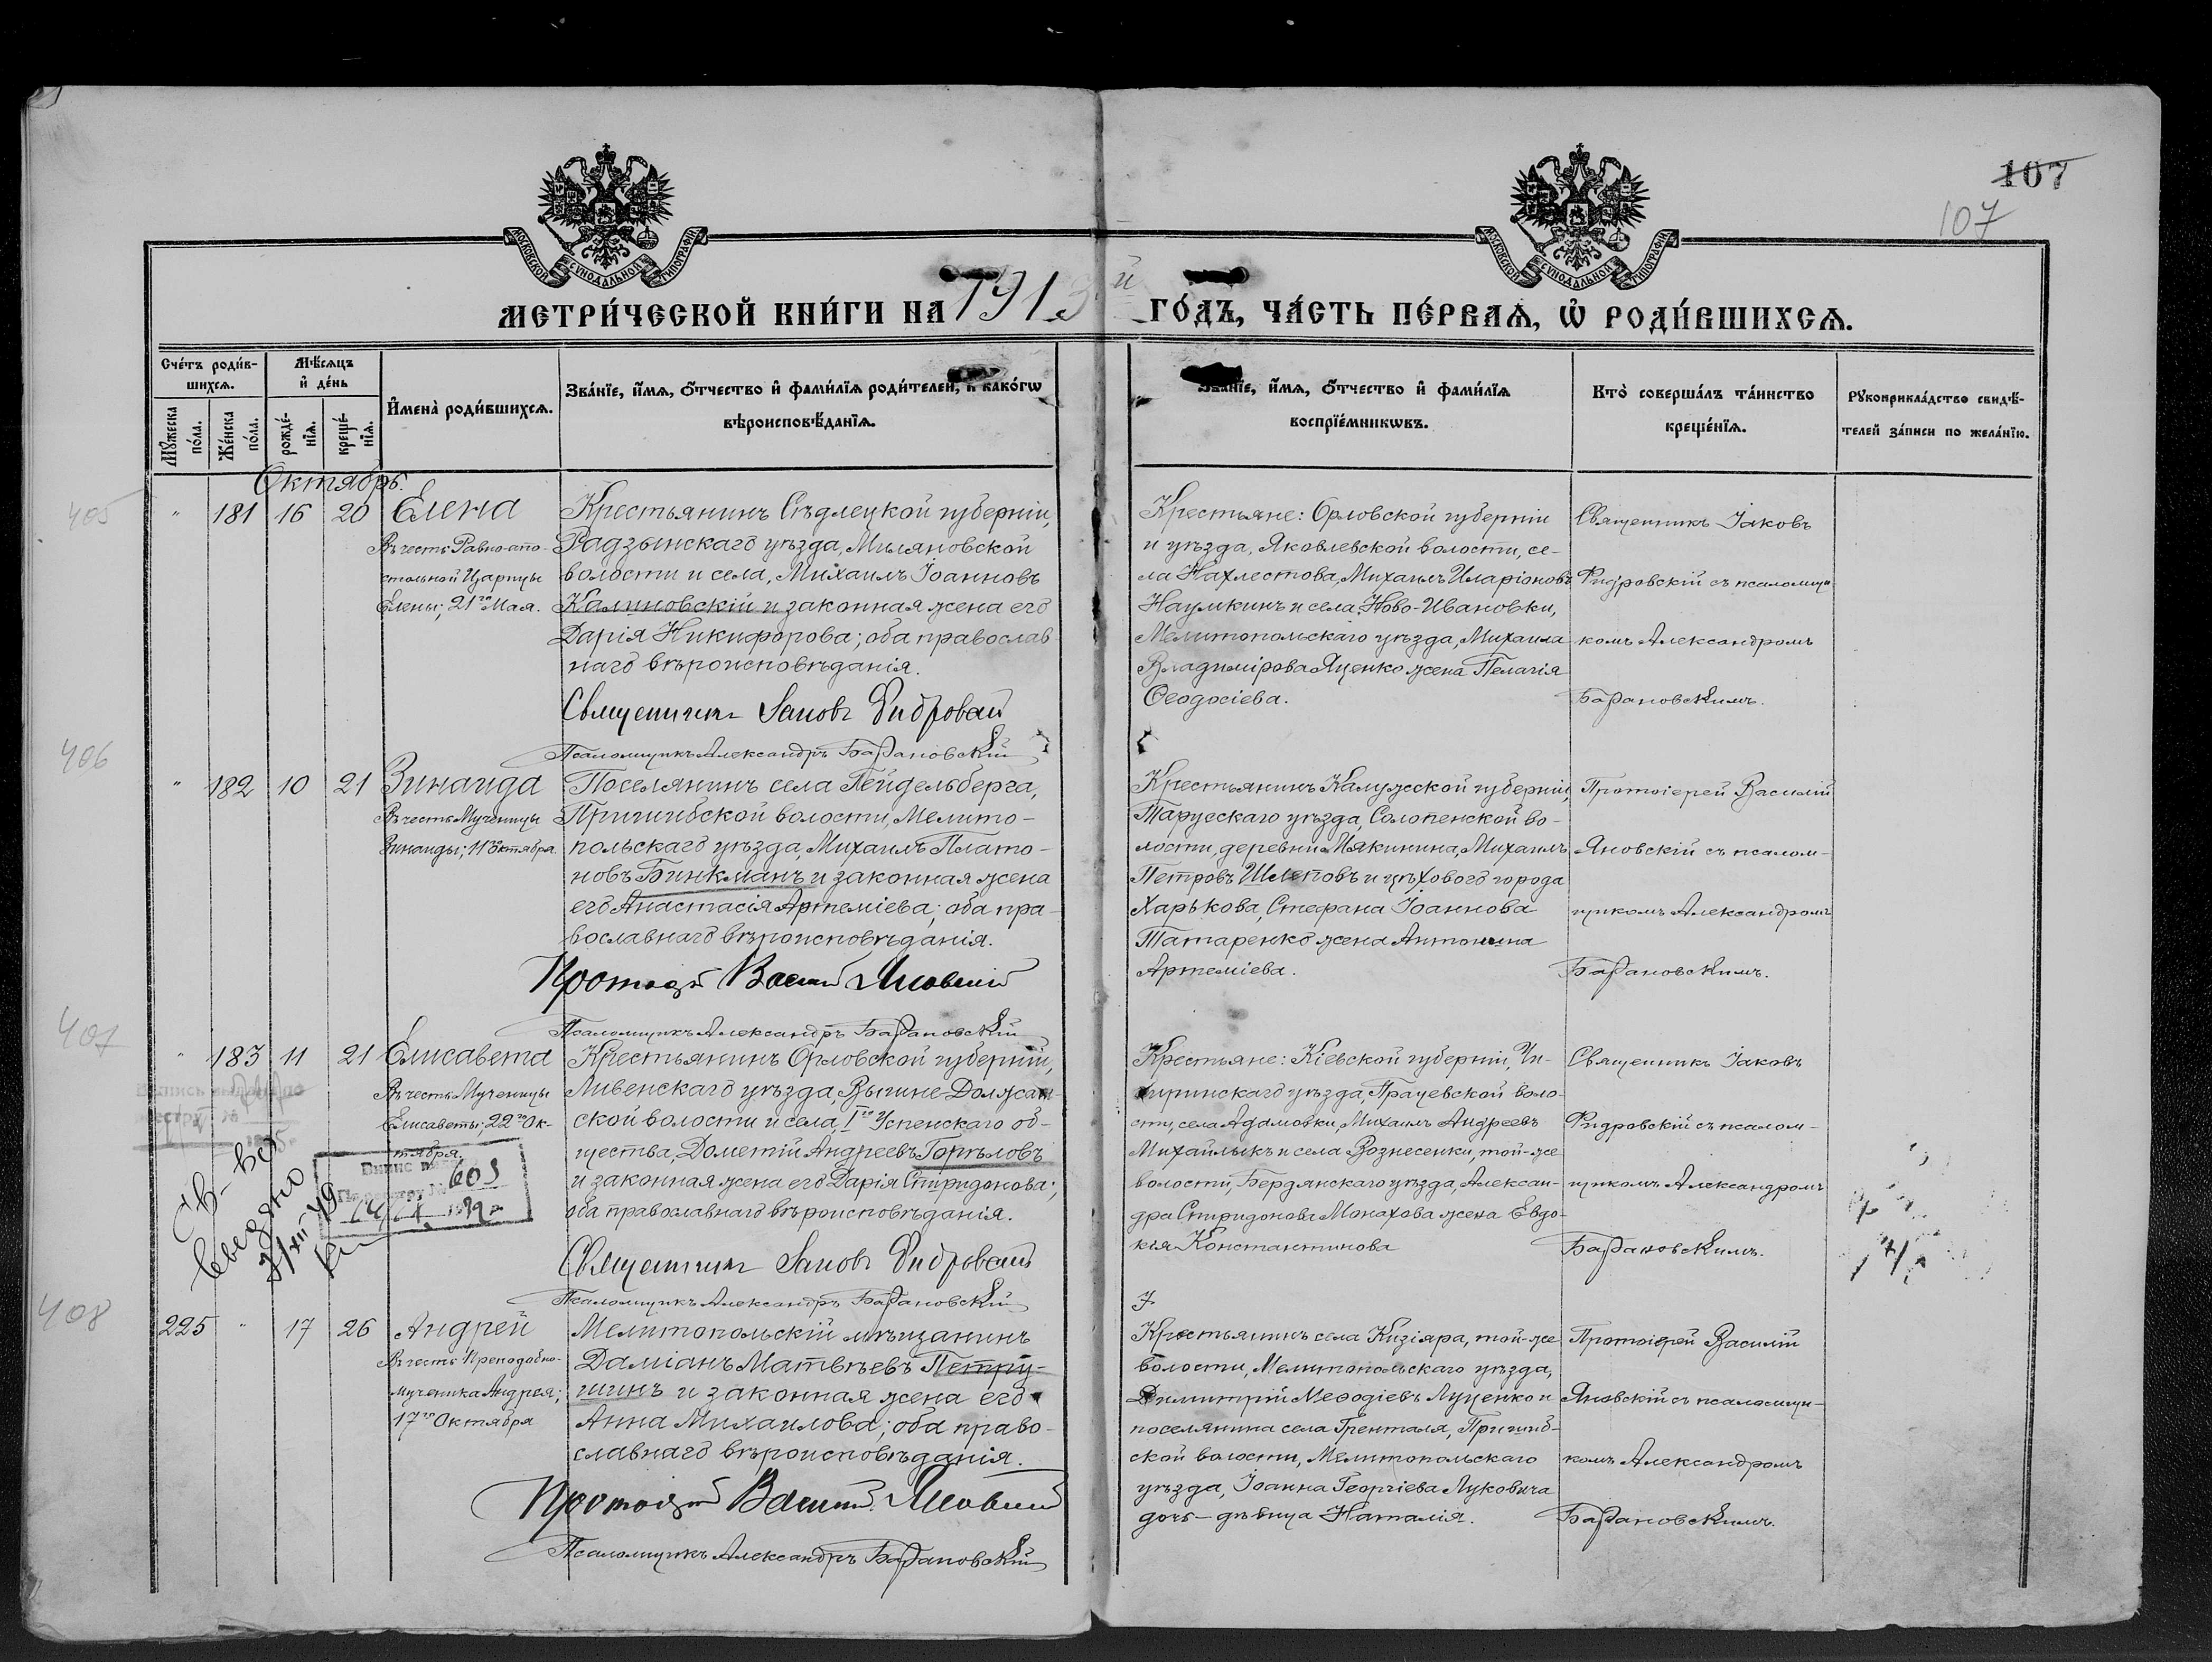 107
107
МОСКОВСКОЙ СУНОДАЛЬНОЙ ТИПОГРАФИИ
МОСКОВСКОЙ СУНОДАЛЬНОЙ ТИПОГРАФИИ
МЕТРИ́ЧЕСКОЙ КНИ́ГИ НА 1913й ГО́ДЪ, ЧА́СТЬ ПЕ́РВАѦ, Ѡ РОДИ́ВШИХСѦ.
Сче́тъ роди́в-
шихсѧ.
Мꙋжеска по́ла.
Же́нска по́ла.
Мѣ́сѧцъ и де́нь
рожде́-
нїѧ.
креще́-
нїѧ.
И҆мена̀ роди́вшихсѧ.
Зва́нїе, и҆́мѧ, ѻ҆́тчество и҆ фами́лїѧ роди́телей, и҆ како́гѡ
вѣроисповѣ́данїѧ.
Зва́нїе, и҆́мѧ, ѻ҆́тчество и҆ фами́лїѧ
воспрїе́мникѡвъ.
Кто̀ соверша́лъ та́инство
креще́нїѧ.
Рꙋкоприкла́дство свидѣ́-
телей за́писи по жела́нїю.
Октябрь.
405
" 181 16 20 Елена
Въ честь Равно-апо-
стольной Царицы
Елены; 21го Мая.
Крестьянинъ Сѣдлецкой губерніи,
Радзынскаго уѣзда, Миляновской
волости и села, Михаилъ Іоанновъ
Калиновскій и законная жена его
Дарія Никифорова; оба православ
наго вѣроисповѣданія.
Священникъ Іаковъ
Псаломщикъ Александръ Барановскій
Крестьяне: Орловской губерніи
и уѣзда, Яковлевской волости, се-
ла Нахлестова, Михаилъ Иларіоновъ
Наумкинъ и села Ново-Ивановки,
Мелитопольскаго уѣзда, Михаила
Владимірова Яценко жена Пелагія
Ѳеодосіева.
Священникъ Іаковъ
съ псаломщи-
комъ Александромъ
Барановскимъ.
406
" 182 10 21 Зинаида
Въ честь Мученицы
Зинаиды; 11го Октября.
Поселянинъ села Гейдельберга,
Пришибской волости, Мелито-
польскаго уѣзда, Михаилъ Плато-
новъ Бинкманъ и законная жена
его Анастасія Артеміева; оба пра-
вославнаго вѣроисповѣданія.
Протоіерей Василій Яновскій
Псаломщикъ Александръ Барановскій
Крестьянинъ Калужской губерніи,
Тарусскаго уѣзда, Солопенской во-
лости, деревни Мякинина, Михаилъ
Петровъ Шлеповъ и цѣхового города
Харькова, Стефана Іоаннова
Татаренко жена Антонина
Артеміева.
Протоіерей Василій
Яновскій съ псалом-
щикомъ Александромъ
Барановскимъ.
407
" 183 11 21 Елисавета
Въ честь Мученицы
Елисаветы; 22го Ок-
тября.
605
Св-во
выдано
Крестьянинъ Орловской губерніи,
Ливенскаго уѣзда, Вышне-Должан
ской волости и села, 1го Успенскаго об-
щества, Дометій Андреевъ Горѣловъ
и законная жена его Дарія Спиридонова;
оба православнаго вѣроисповѣданія.
Священникъ Іаковъ
Псаломщикъ Александръ Барановскій
Крестьяне: Кіевской губерніи, Чи-
гиринскаго уѣзда, Грачевской воло-
сти, села Адамовки, Михаилъ Андреевъ
Михайлыкъ и села Вознесенки, той-же
волости, Бердянскаго уѣзда, Алексан-
дра Спиридонова Монахова жена Евдо-
кія Константинова
Священникъ Іаковъ
съ псалом-
щикомъ Александромъ
Барановскимъ.
408
225 " 17 26 Андрей
Въ честь Преподобно-
мученика Андрея;
17го Октября
Мелитопольскій мѣщанинъ
Даміанъ Матвѣевъ Петру-
шинъ и законная жена его
Анна Михаилова; оба право-
славнаго вѣроисповѣданія.
Протоіерей Василій Яновскій
Псаломщикъ Александръ Барановскій
Крестьянинъ села Кизіяра, той-же
волости, Мелитопольскаго уѣзда,
Димитрій Меѳодіевъ Луценко и
поселянина села Гренталя, Пришиб-
ской волости, Мелитопольскаго
уѣзда, Іоанна Георгіева Луковича
дочь-дѣвица Наталія.
Протоіерей Василій
Яновскій съ псаломщи-
комъ Александромъ
Барановскимъ.